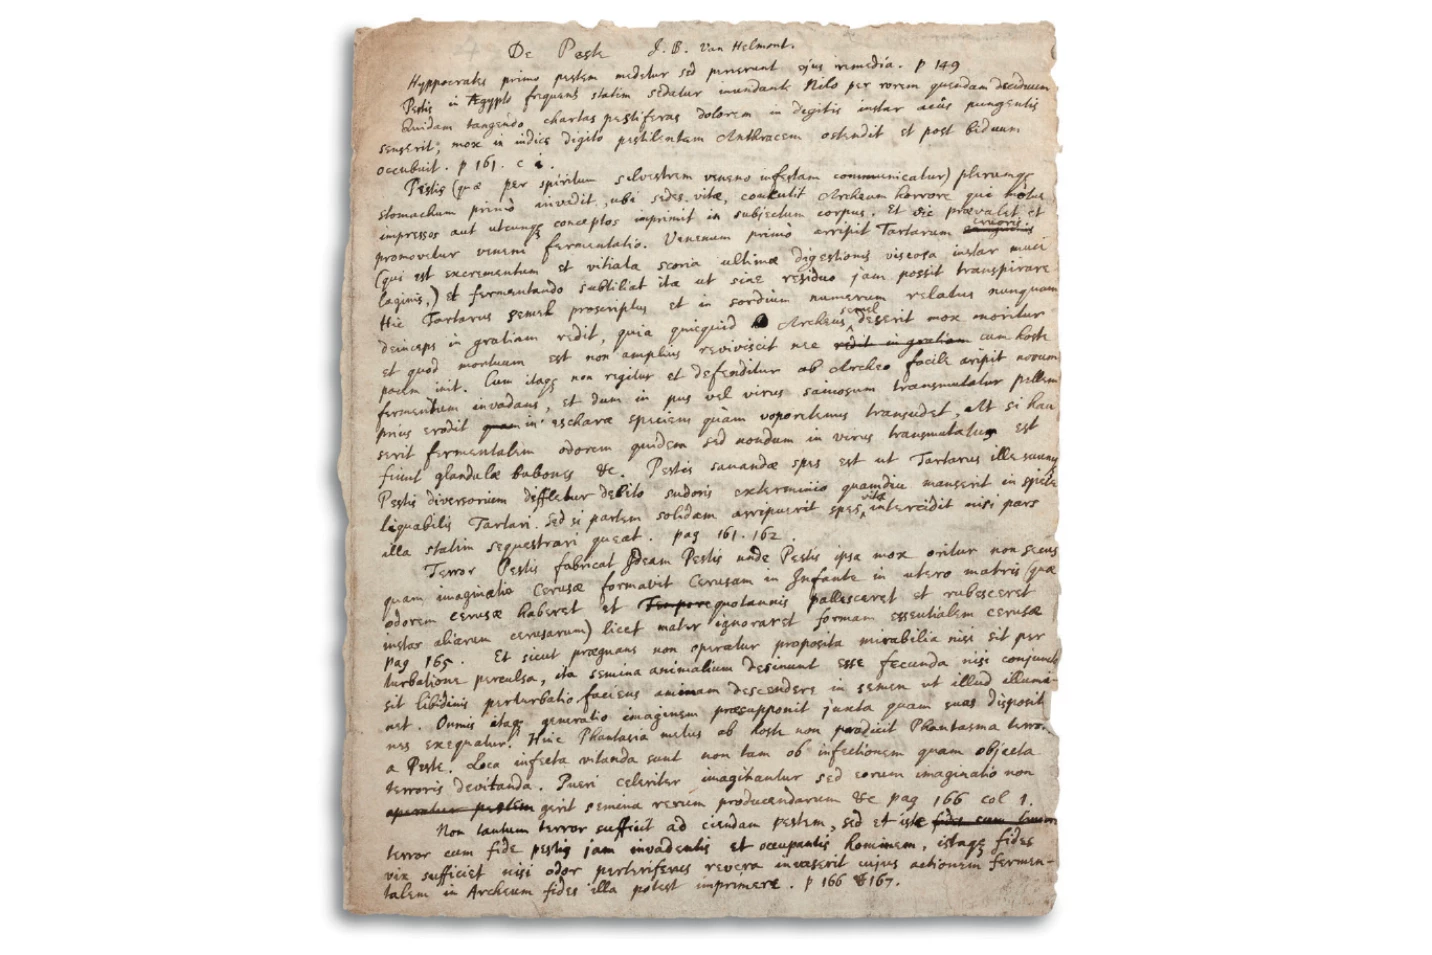 De Peste J. B. Van Helmont.
Hyppocrates primo pestem medetur sed perierunt ejus remedia. p 149
Pestis in Ægypto frequens statim sedatur inundante Nilo per rorem quendam deciduum
Quidam tangendo chartas pestiferas dolorem in digitis instar acûs pungentis
senserit; mox in indice digito pestilentem Anthracem ostendit et post biduum
occubuit. p 161. c 1.
Pestis (quæ per spiritum silvestrem veneno infestam communicatur) plerumqꝫ
stomachum primò invadit, ubi sedes vitæ, Archeum horrore qui motus
impressos aut utcunqꝫ conceptos imprimit in subjectum corpus. Et sic prævalet et
promovetur veneni fermentatio. Venenum primò arripit Tartarum sanguinis cruoris
(qui est excrementum et vitiata scoria ultimæ digestionis viscosa instar muci
laginis,) et fermentando subtiliat ita ut sine residuo jam possit transpirare
Hic Tartarus semel proscriptus et in sordium numerum relatus nunquam
deinceps in gratiam redit, quia quicquid Archeus semel deserit mox moritur
et quod mortuum est non amplius reviviscit nec redit in gratiam cum hoste
pacem init. Cum itaqꝫ non regitur et defenditur ab Archeo facile aripit novum
fermentum invadens, et dum in pus vel virus saniosum transmutatur pellem
prius erodit quam in escharæ speciem quàm voporetenus transudet. At si hau
serit fermentalem odorem quidem sed nondum in virus transmutatus est
fiunt glandulæ bubones &c. Pestis sanandæ spes est ut Tartarus ille
Pestis diversorium diffletur debito sudoris exterminio quamdiu manserit in specie
liquabilis Tartari. Sed si partem solidam arripuerit spes vitæ intercidit nisi pars
illa statim sequestrari queat. pag 161. 162.
Terror Pestis fabricat Ideam Pestis unde Pestis ipsa mox oritur non secus
quam imaginatio Cerusæ formavit Cerusam in Infante in utero matris (quæ
odorem cerusæ haberet et Tempore quotannis pallesceret et rubesceret
instar aliarum cerusarum) licet mater ignoraret formam essentialem cerusæ
pag 165. Et sicut prægnans non operatur proposita mirabilia nisi sit per
turbatione perculsa, ita semina animalium desinunt esse fecunda nisi conjuncta
sit libidinis perturbatio faciens animam descendere in semen ut illud illumi-
net. Omnis itaqꝫ generatio imaginem præsupponit juxta quam suas disposit
nes exequatur. Hinc Phantasia metus ab hoste non producit Phantasma terro.
a Peste. Loca infecta vitanda sunt non tam ob infectionem quam objecta
terroris devitanda. Pueri celeriter imaginantur sed eorum imaginatio non
operatur pestem gerit semina rerum producendarum &c pag 166 col 1.
Non tantum terror sufficit ad ciendam pestem, sed et iste fides cum
terror cum fide pestis jam invadentis et occupantis hominem, istaqꝫ fides
vix sufficiet nisi odor pestiferus revera invaserit cujus actionem fermen-
talem in Archeum fides illa potest imprimere. p 166 & 167.